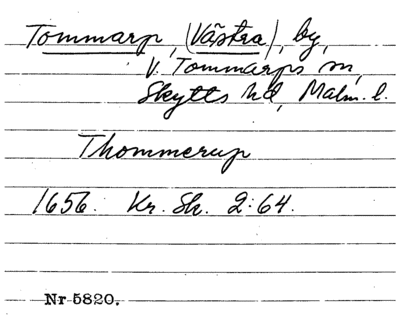 Tommarp, (Västra), by,
V. Tommarps sn,
Skytts hd, Malm. l.
Thommerup
1656. Kr. Sk. 2:64.
Nr 5820.